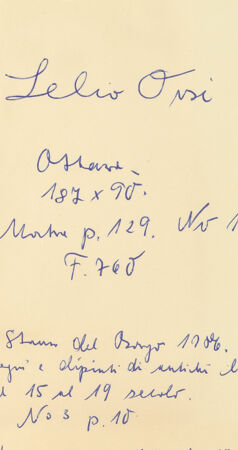 Lelio Orsi
187 x 90.
Mostra p. 129. No 1
F. 760
Stanza del Borgo
e dipinti di antichi
15 al 19 secolo.
No 3 p. 10